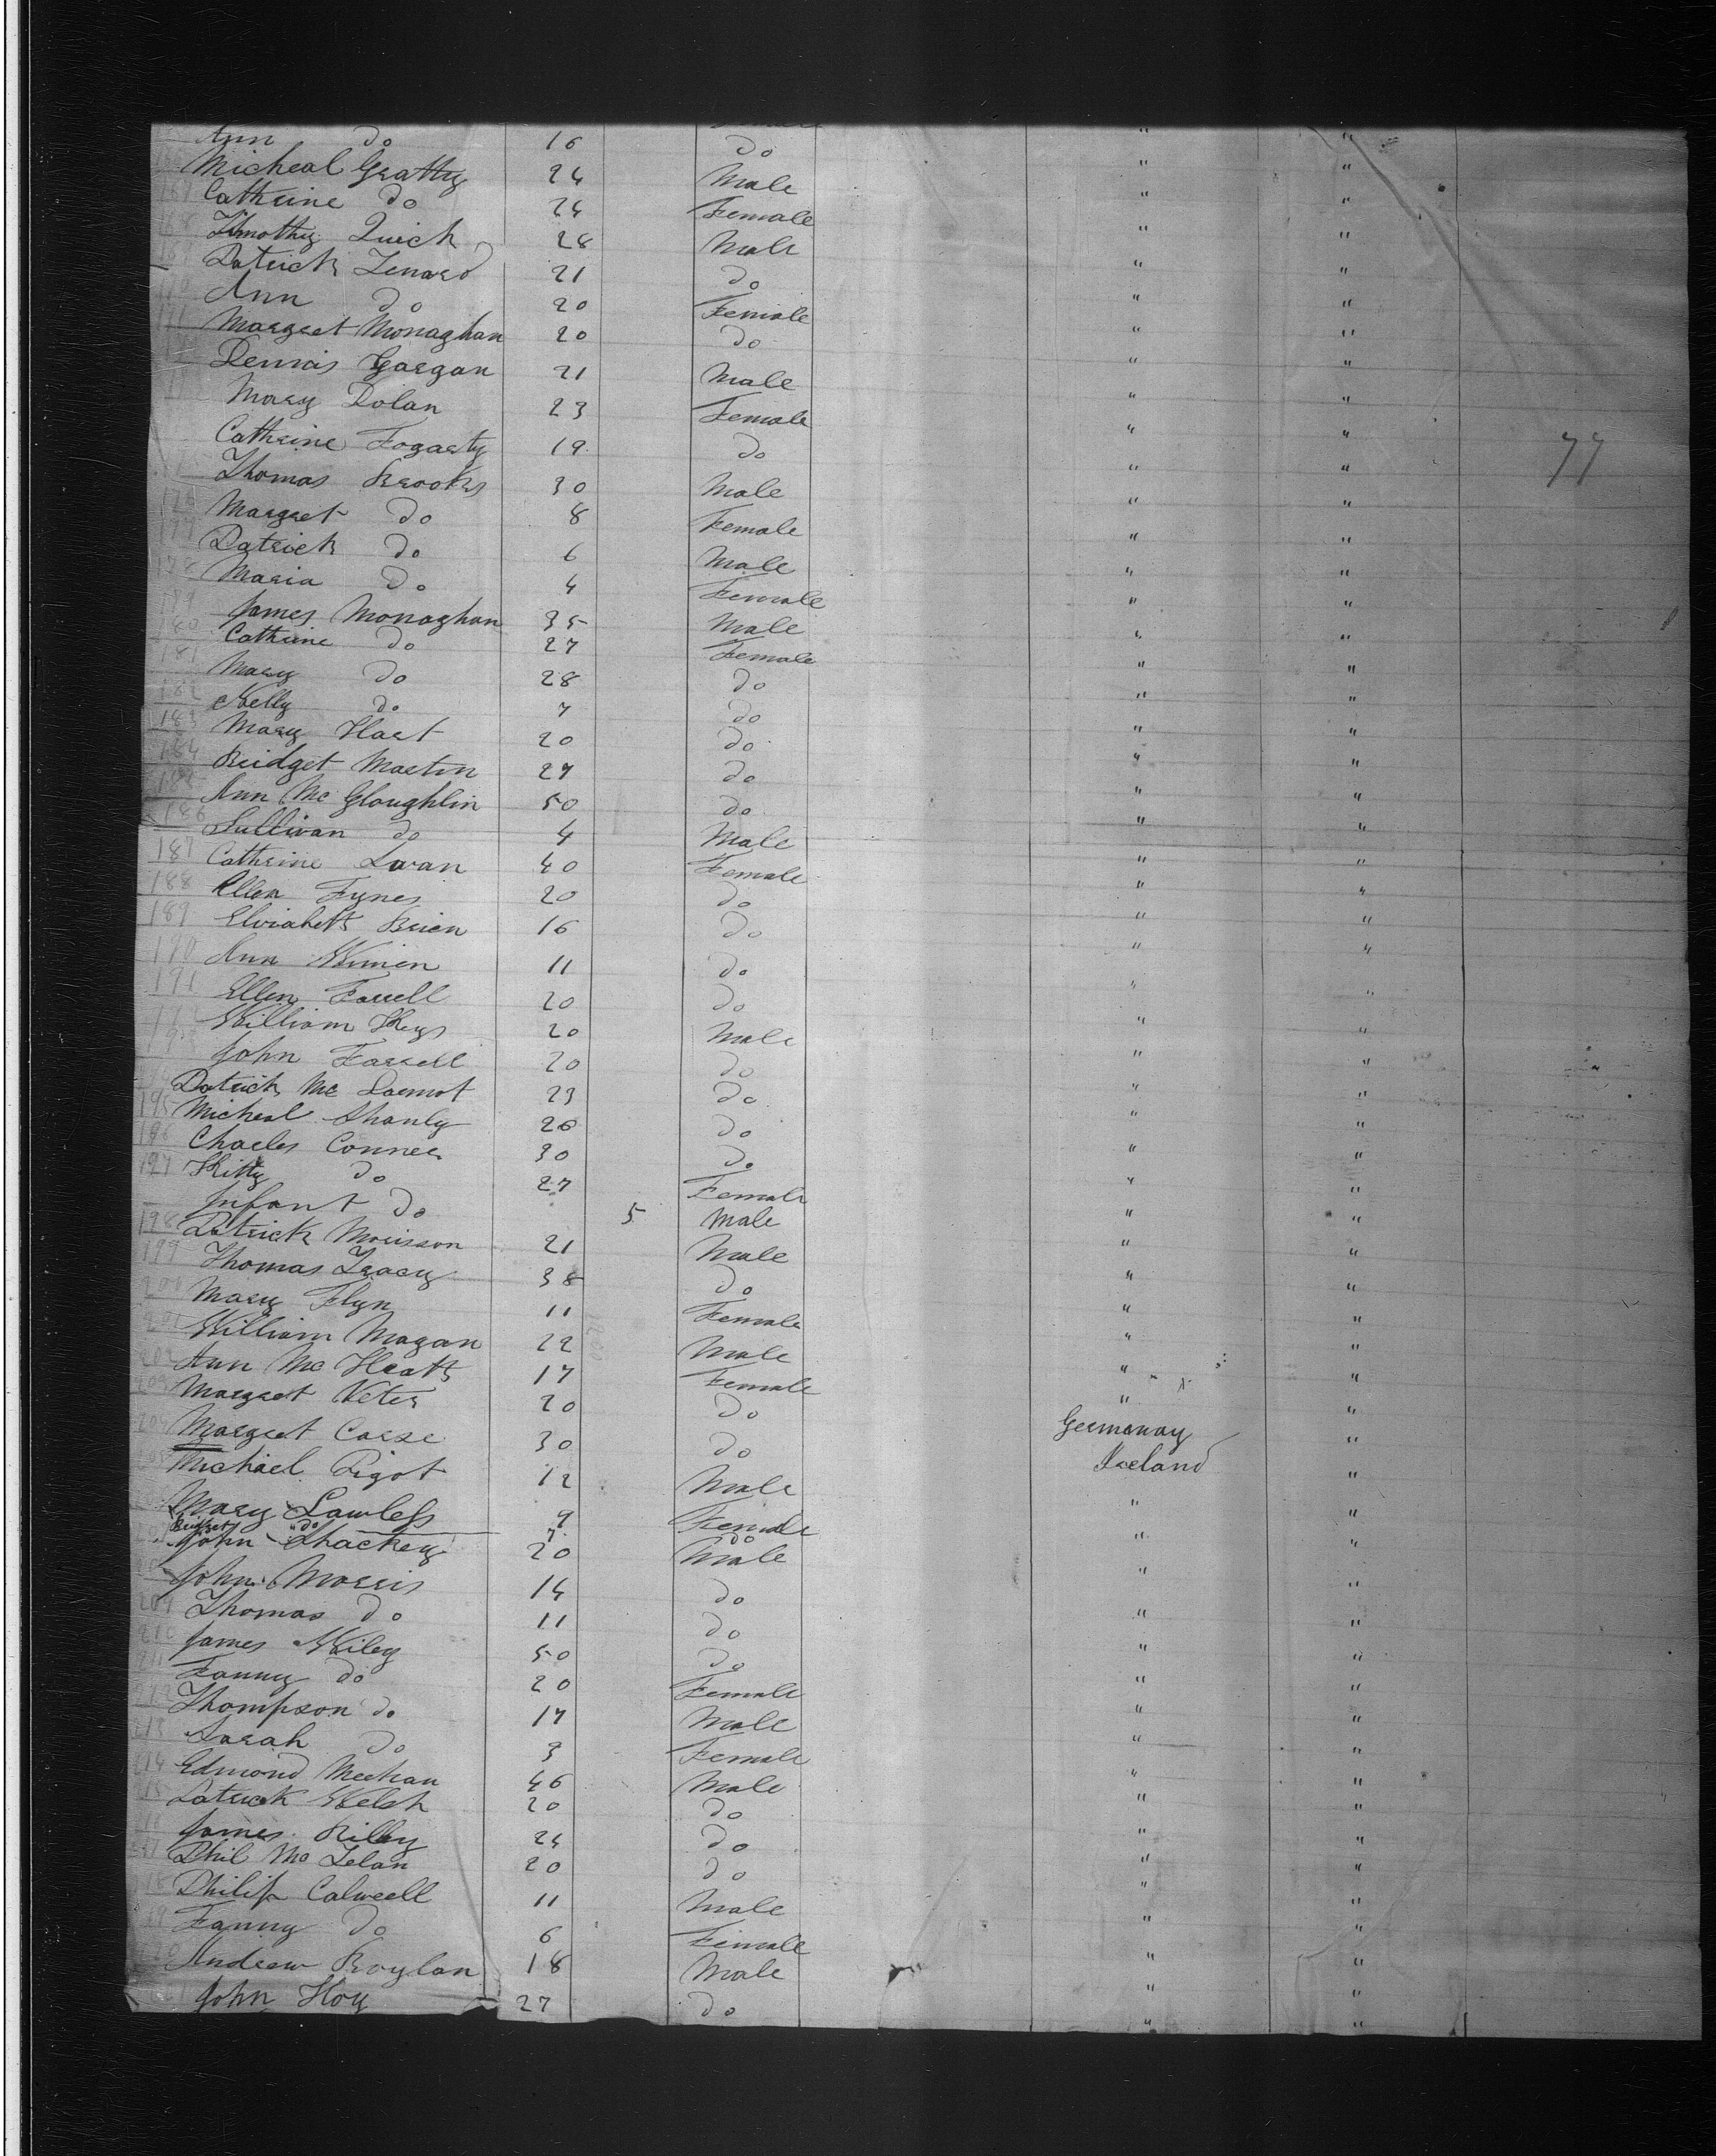 Ann do 16 do " "
Micheal Gratty 24 Male " "
167 Cathrine do 24 Female " "
168 Timothy Quick 28 Male " "
169 Patrick Lenard 21 do " "
170 Ann do 20 Female " "
171 Margret Monaghan 20 do " "
Dennis Gargan 21 Male " "
Mary Dolan 23 Female " "
Cathrine Fogarty 19 do " "
77
Thomas Brooks 30 Male " "
176 Margret do 8 Female " "
177 Patrick do 6 Male " "
178 Maria do 4 Female " "
179 James Monaghan 35 Male " "
180 Cathrine do 27 Female " "
181 Mary do 28 do " "
182 Kelly do 7 do " "
183 Mary Hart 20 do " "
184 Bridget Martin 27 do " "
185 Ann Mc Gloughlin 50 do " "
186 Sullivan do 4 Male " "
187 Cathrine Swan 40 Female " "
188 Ellen Fynes 20 do " "
189 Brien 16 do " "
190 Ann 11 do " "
191 Ellen Farrell 20 do " "
William Keys 20 Male " "
John Farrell 20 do " "
Patrick Mc Darmot 23 do " "
195 Micheal Shanly 20 do " "
196 Charles Conner 30 do " "
197 Kitty do 27 Female " "
Infant do 5 Male " "
198 Patrick Morisson 21 Male " "
199 Thomas Tracey 38 do " "
200 Mary Flyn 11 Female " "
201 William Magan 22 Male " "
202 Ann Mc Heath 17 Female " "
203 Margret 20 do " "
204 Margret Carse 30 do Germanay "
205 Michael Pigot 12 Male Ireland "
Mary Lawless 9 Female " "
Bridget "do 7 do
John Shackey 20 Male " "
John Morris 14 do " "
209 Thomas do 11 do " "
210 James Wiley 50 do " "
211 Fanny do 20 Female " "
212 Thompson do 17 Male " "
213 Sarah do 3 Female " "
214 Edmond Meehan 46 Male " "
215 Patrick Welsh 20 do " "
James Rilley 24 do " "
217 Phil Mc Lelan 20 do " "
218 Philip Calwell 11 Male " "
219 Fanny do 6 Female " "
220 Andrew Boylan 18 Male " "
221 John Hoy 27 do " "
" "